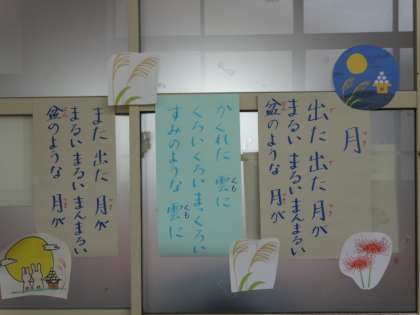 月
出た 出た 月が
まるい まるい まんまるい
盆のような 月が
かくれた 雲に
くろい くろい まっくろい
すみのような 雲に
また 出た 月が
まるい まるい まんまるい
盆のような 月が